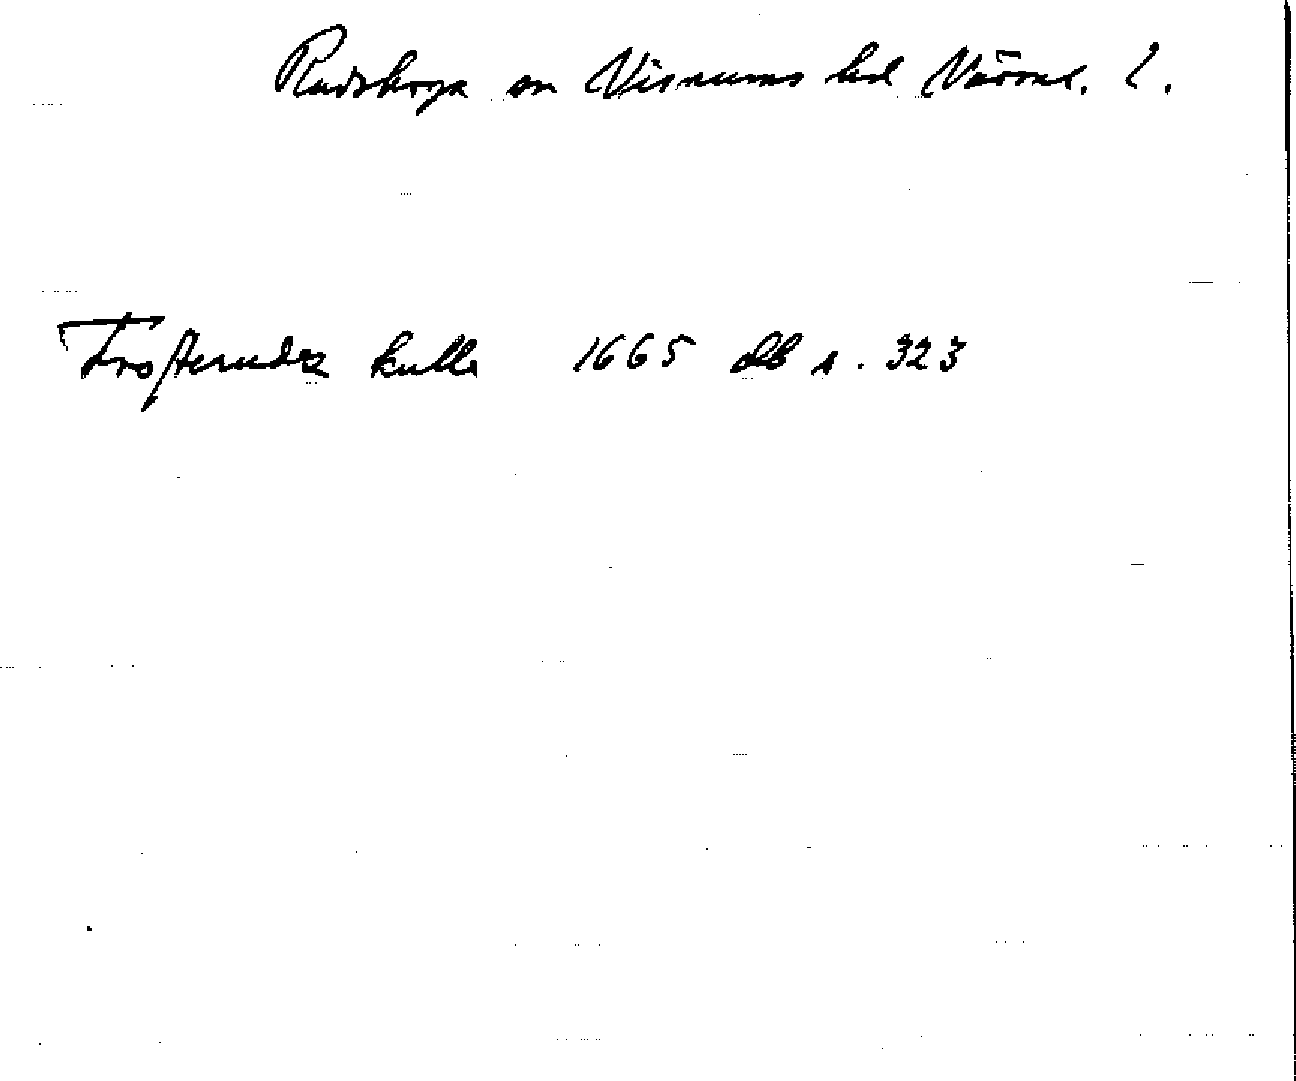 Rudskoga sn Visnums hd Värml. l.
kulle 1665 db s. 323